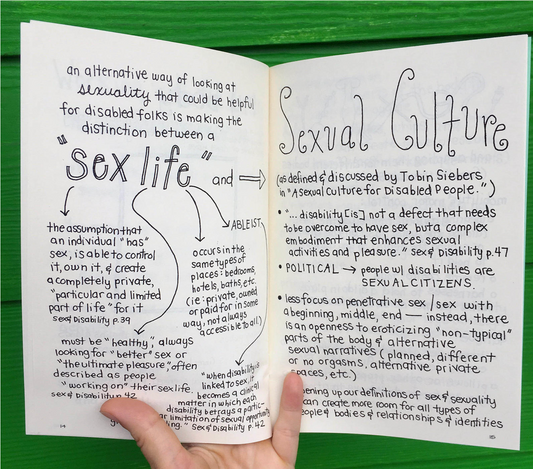 an alternative way of looking at
sexuality that could be helpful
for disabled folks is making the
distinction between a
"sex life" and ⟹
the assumption that
an individual "has"
sex, is able to control
it, own it, & create
a completely private,
"particular and limited
part of life" for it
sex & Disability p.39
must be "healthy," always
looking for "better" sex or
"the ultimate pleasure," often
described as people
"working on" their sex life.
sex & Disability p.42
occurs in the
same types of
places: bedrooms,
hotels, baths, etc.
(ie: private, owned
or paid for in some
way, not always
accessible to all.)
ABLEIST
"when disability is
linked to sex, it
becomes a clinical
matter in which each
disability betrays a partic-
ar limitation of sexual opportunity
ing." Sex & Disability p.42
Sexual Culture
(as defined & discussed by Tobin Siebers
in "A Sexual Culture for Disabled People.")
• "... disability [is] not a defect that needs
to be overcome to have sex, but a complex
embodiment that enhances sexual
activities and pleasure." Sex & Disability p.47
• POLITICAL → people w/ disabilities are
SEXUAL CITIZENS.
• less focus on penetrative sex/sex with
a beginning, middle, end — instead, there
is an openness to eroticizing "non-typical"
parts of the body & alternative
sexual narratives (planned, different
or no orgasms, alternative private
spaces, etc.)
ening up our definitions of sex & sexuality
can create more room for all types of
people & bodies & relationships & identities